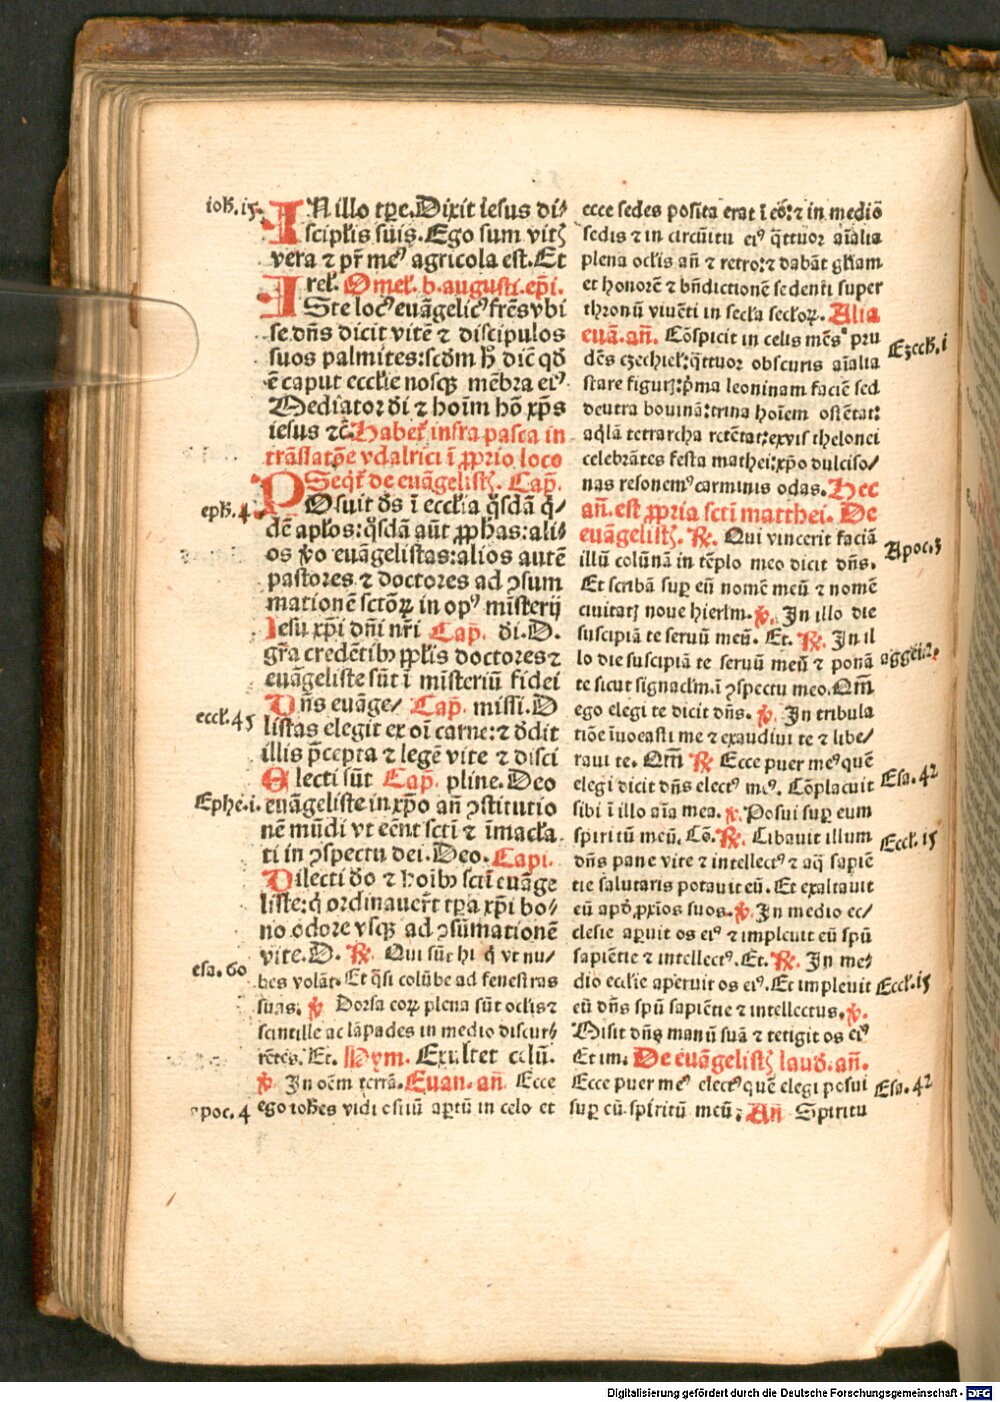 ioh̄. i5.
IN illo tp̄e. Dixit iesus di⸗
scipl̄is suis. Ego sum vitꝫ
vera ⁊ pr̄ me⁹ agricola est. Et
rel̄. Omel̄. b. augusti. ep̄i.
ISte loc⁹ euāgelic⁹ fr̄es vbi
se dn̄s dicit vitē ⁊ discipulos
suos palmites: scd̄m h̄ dic̄ qd̄
ē caput eccl̄ie nosqꝫ mēbra ei⁹
Mediator di ⁊ hoīm hō xp̄s
iesus ⁊c̄. Habet̄ infra pasca in
trāslatōe vdalrici ī ꝓprio loco
Seqt̄ de euāgelistꝫ. Cap̄.
eph̄. 4.
POsuit ds̄ ī eccl̄ia q̄sdā q̄⸗
dē apl̄os: q̄sdā aūt ꝓph̄as: ali⸗
os v̄o euāgelistas: alios autē
pastores ⁊ doctores ad ꝯsum
mationē sctōꝝ in op⁹ mīsterij
Iesu xp̄i dn̄i nr̄i Cap̄. di. D.
gr̄a credētibꝫ ppl̄is doctores ⁊
euāgeliste sūt ī misteriū fidei
Dn̄s euāge⸗ Cap̄. missi. D
eccl̄. 45
listas elegit ex oī carne: ⁊ d̄dit
illis p̄cepta ⁊ legē vite ⁊ disci
Electi sūt Cap̄. pline. Deo
Ephe. i.
euāgeliste in xp̄o an̄ ꝯstitutio
nē mūdi vt eēnt sctī ⁊ īmacl̄a
ti in ꝯspectu dei. Deo. Capi.
Dilecti d̄o ⁊ hoībꝫ sctī euāge
liste: q̄ ordinauer̄t tp̄a xp̄i bo⸗
no odore vsqꝫ ad ꝯsūmationē
vite. D. ℟. Qui sūt hi q̄ vt nu⸗
esa. 60
bes volāt. Et q̄si colūbe ad fenestras
suas. ℣ Dorsa eoꝝ plena sūt oclis ⁊
scintille ac lāpades in medio discur⸗
rētes. Et. Hym. Exultet celū.
℣. In oēm terrā. Euan. an̄. Ecce
apoc. 4
ego ioh̄es vidi ostiū aptū in celo et
ecce sedes posita erat ī eō: ⁊ in mediō
sedis ⁊ in circūitu ei⁹ q̄ttuor aīalia
plena oclis an̄ ⁊ retro: ⁊ dabāt gl̄iam
et honorē ⁊ bn̄dictionē sedenti super
thronū viuēti in secl̄a secl̄oꝝ. Alia
euā. an̄. Cōspicit in celis mēs pru
Ezech̄. i
dēs ezechiel̄: q̄ttuor obscuris aīalia
stare figuꝝ: p̄ma leoninam faciē sed
deutra bouinā: trina hoīem ostētat:
aq̄la tetrarcha retētat: exvis thelonei
celebrātes festa mathei: xp̄o dulciso⸗
nas resonem⁹ carminis odas. Hec
an̄. est ꝓpria sctī matthei. De
euāgelistꝫ. ℟. Qui vincerit faciā
Apoc. 3
illū colūnā in tēplo meo dicit dn̄s.
Et scribā suꝑ eū nomē meū ⁊ nomē
ciuitatꝫ noue hierl̄m. ℣. In illo die
suscipiā te seruū meū. Et. ℟. In il
aggei. 2.
lo die suscipiā te seruū meū ⁊ ponā
te sicut signacl̄m. ī ꝯspectu meo. Qm̄
ego elegi te dicit dn̄s. ℣. In tribula
tiōe īuocasti me ⁊ exaudiui te ⁊ libe⸗
raui te. Qm̄ ℟ Ecce puer me⁹ quē
Esa. 42
elegi dicit dn̄s elect⁹ me⁹. Cōplacuit
sibi ī illo aīa mea. ℣. Posui suꝑ eum
spiritū meū. Cō. ℟. Cibauit illum
Eccl̄. i5
dn̄s pane vite ⁊ intellect⁹ ⁊ aq̄ sapīe
tie salutaris potauit eū. Et exaltauit
eū apd̄ ꝓxīos suos. ℣. In medio ec⸗
clesie aꝑuit os ei⁹ ⁊ impleuit eū spū
sapiētie ⁊ intellect⁹. Et. ℟. In me⸗
dio ecclie aperuit os ei⁹. Et impleuit
Eccl̄. i5
eū dn̄s spū sapiētie ⁊ intellectus. ℣.
Misit dn̄s manū suā ⁊ tetigit os ei⁹
Et im. De euāgelistꝫ laud̄. an̄.
Ecce puer me⁹ elect⁹ quē elegi posui
Esa. 42
suꝑ eū spiritū meū; An̄ Spiritu
Digitalisierung gefördert durch die Deutsche Forschungsgemeinschaft - DFG